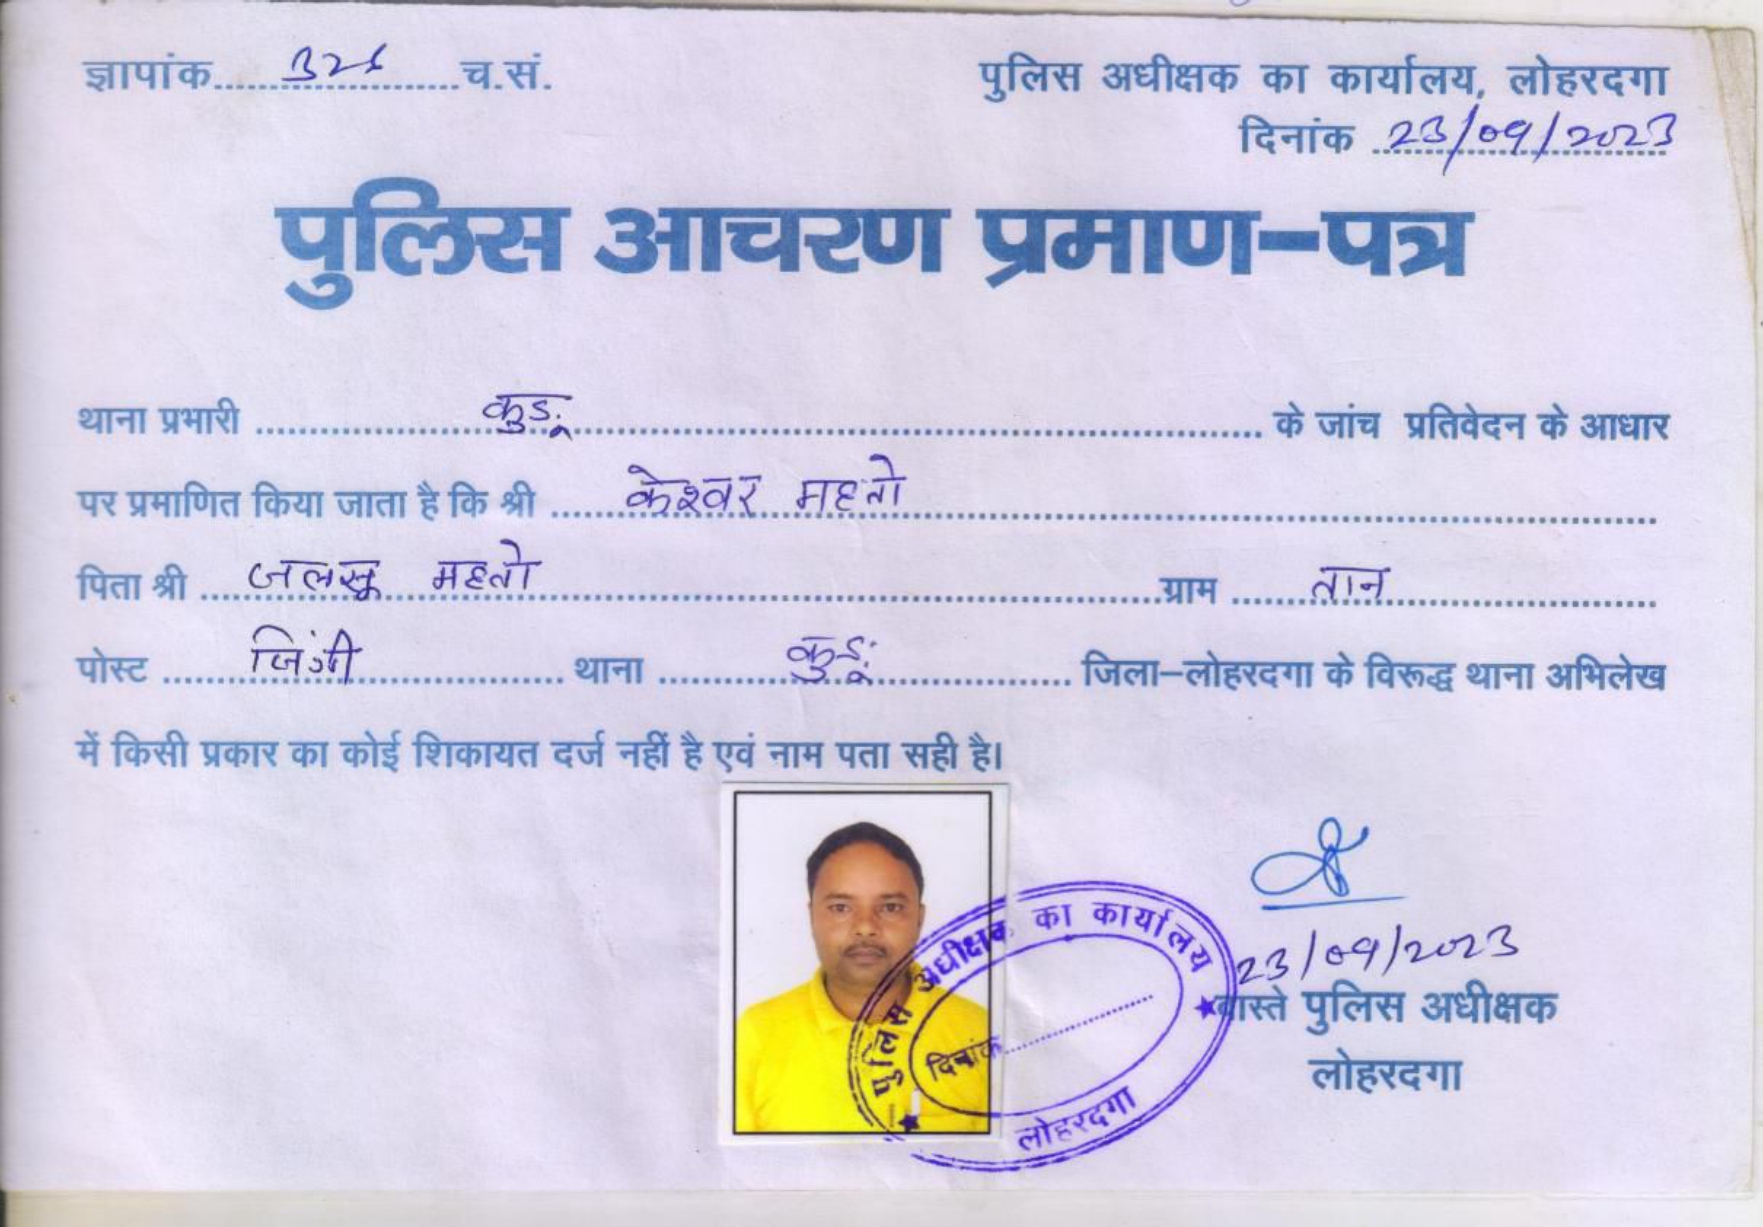 ज्ञापांक.................च.सं.
पुलिस अधीक्षक का कार्यालय, लोहरदगा
दिनांक 23/09/2023
पुलिस आचरण प्रमाण-पत्र
थाना प्रभारी कुडू के जांच प्रतिवेदन के आधार
पर प्रमाणित किया जाता है कि श्री केश्वर महतो
पिता श्री जलसू महतो ग्राम तान
पोस्ट जिंगी थाना कुडू जिला-लोहरदगा के विरूद्ध थाना अभिलेख
में किसी प्रकार का कोई शिकायत दर्ज नहीं है एवं नाम पता सही है।
पुलिस अधीक्षक का कार्यालय
दिनांक
लोहरदगा
23/09/2023
वास्ते पुलिस अधीक्षक
लोहरदगा